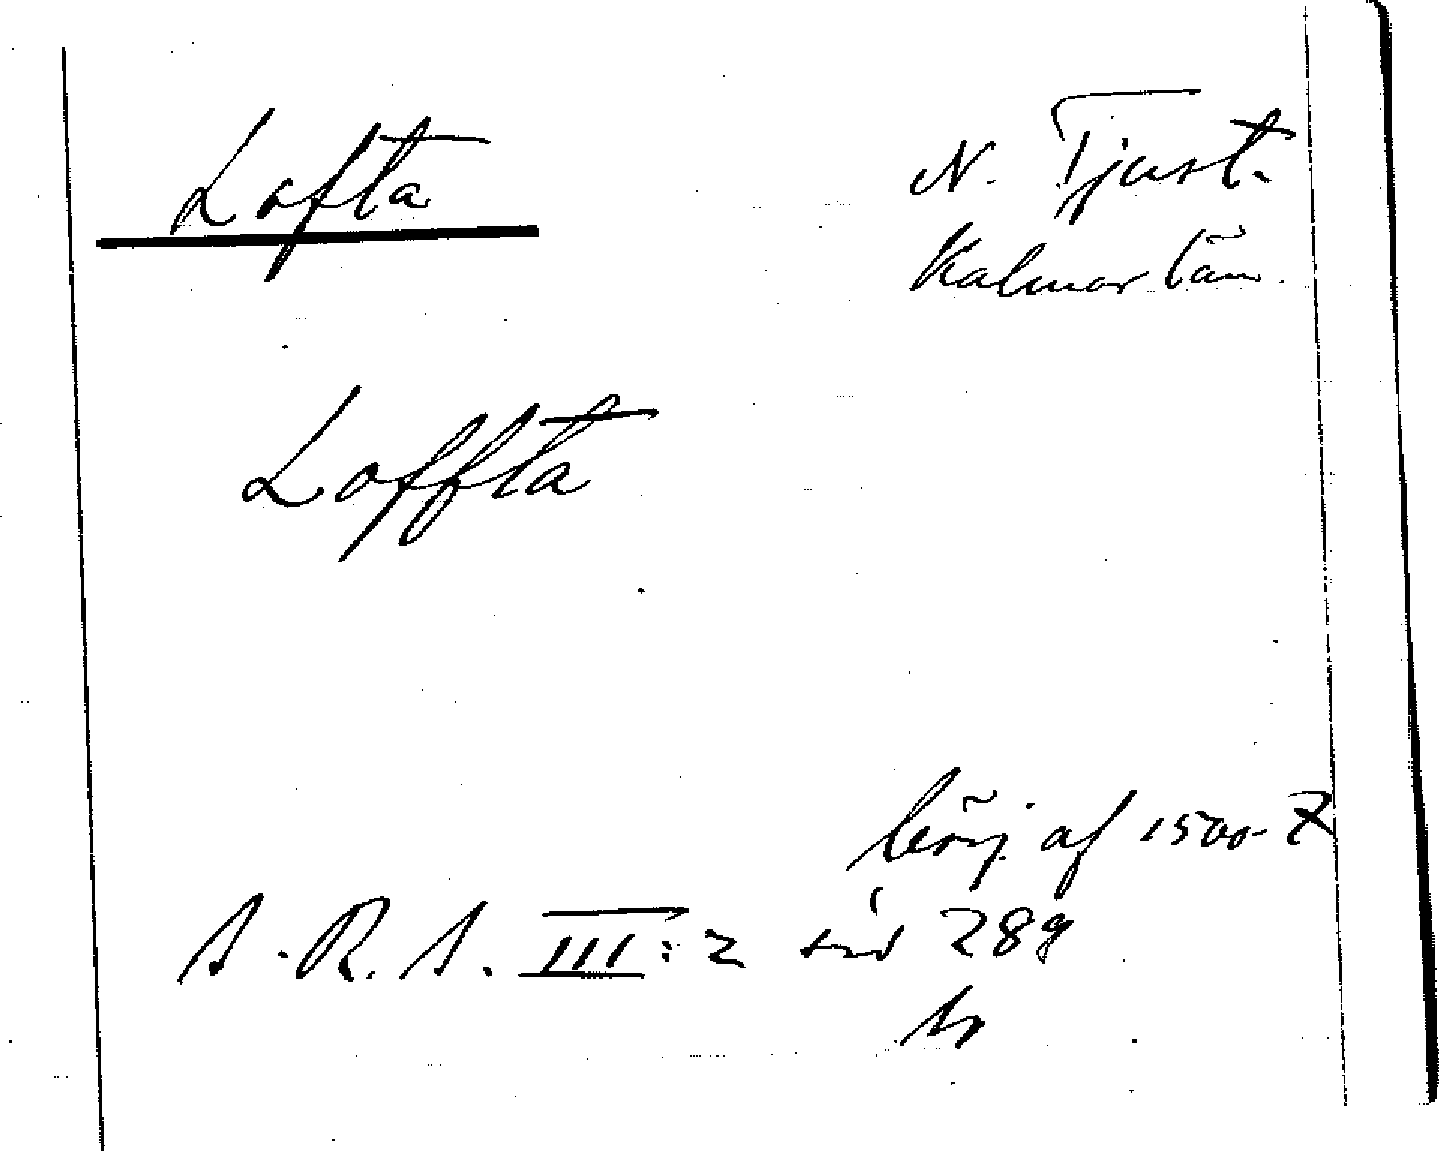 Lofta
N. Tjust.
Kalmar län.
Loffta
börj. af 1500-t
S.R.S. III:2 sid 289